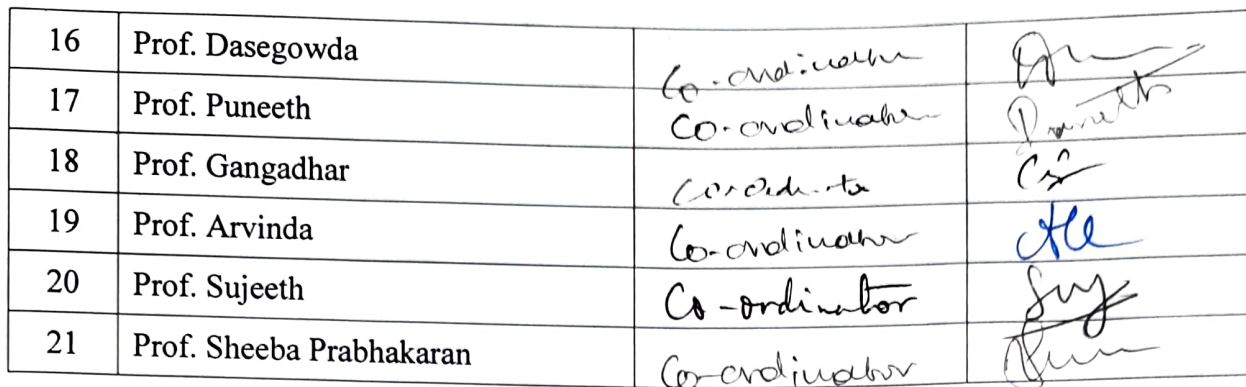 16 Prof. Dasegowda Co-ordinator
17 Prof. Puneeth Co-ordinator Puneeth
18 Prof. Gangadhar Co-ordinator
19 Prof. Arvinda Co-ordinator
20 Prof. Sujeeth Co-ordinator Suj
21 Prof. Sheeba Prabhakaran Co-ordinator